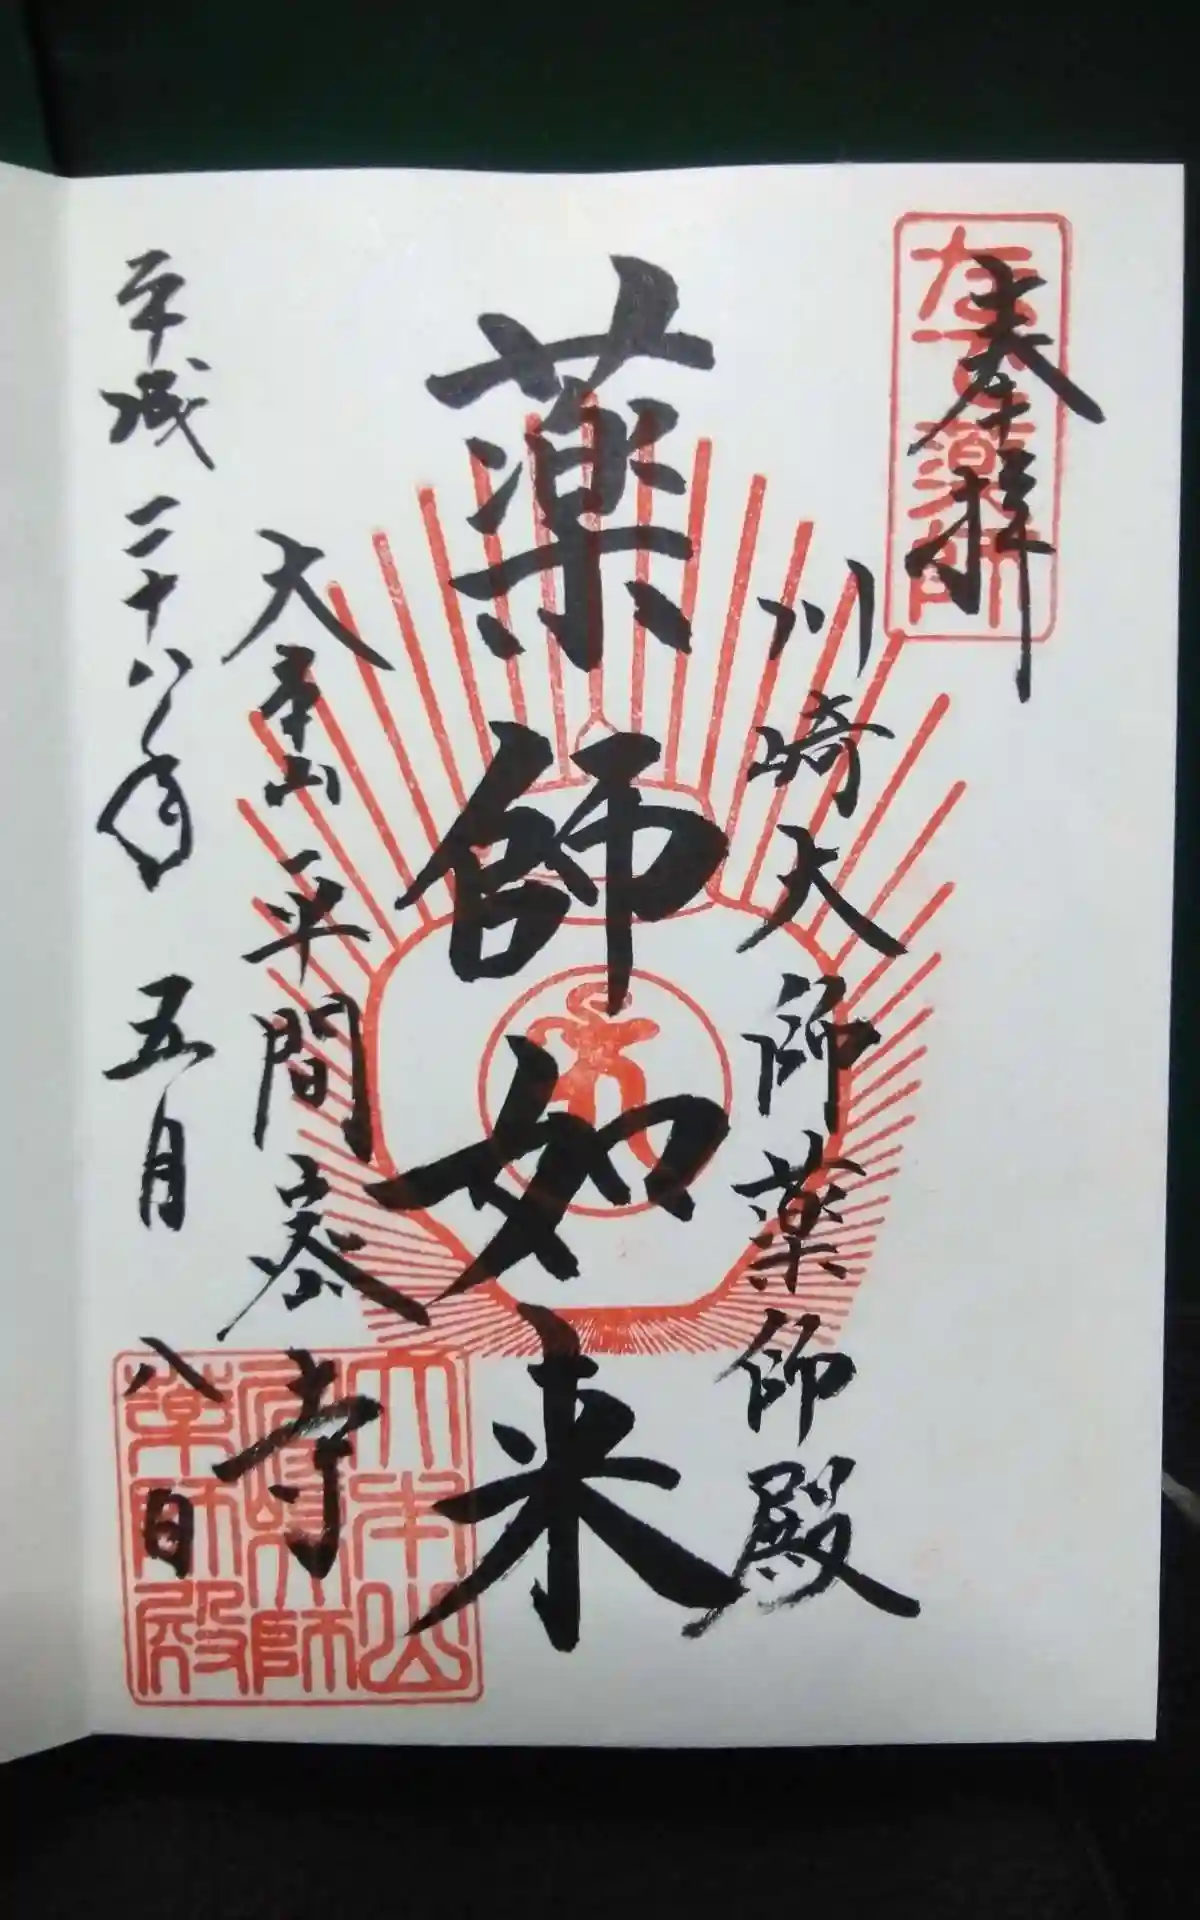 奉拝
なで薬師
川崎大師薬師殿
薬師如来
大本山平間寺
平成二十八年五月八日
大本山
川崎大師
薬師殿